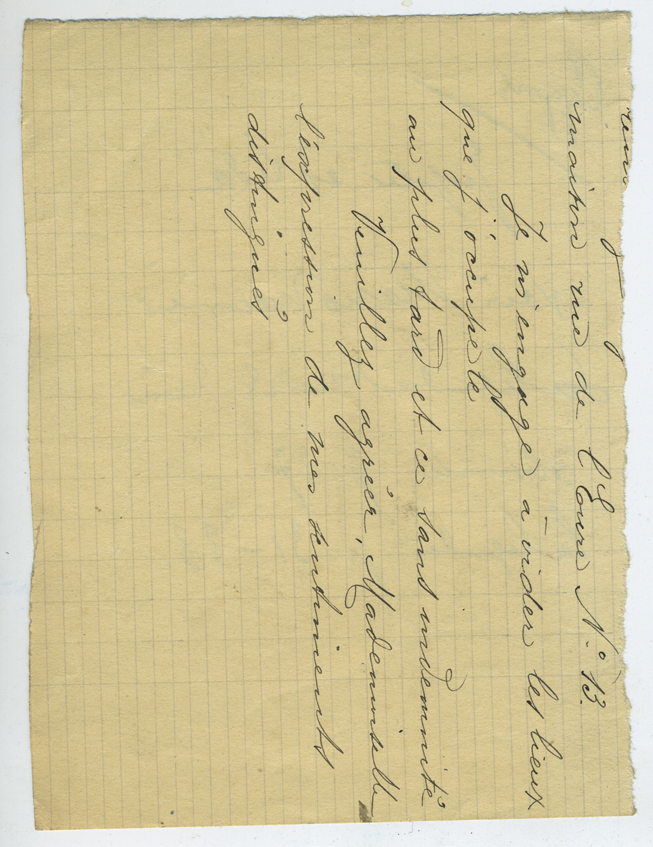 maison rue de l'Eure N° 13.
Je m'engage à vider les lieux
que j'occupe le
au plus tard et ce sans indemnité
Veuillez agréer, Mademoiselle
l'expression de mes sentiments
distingués